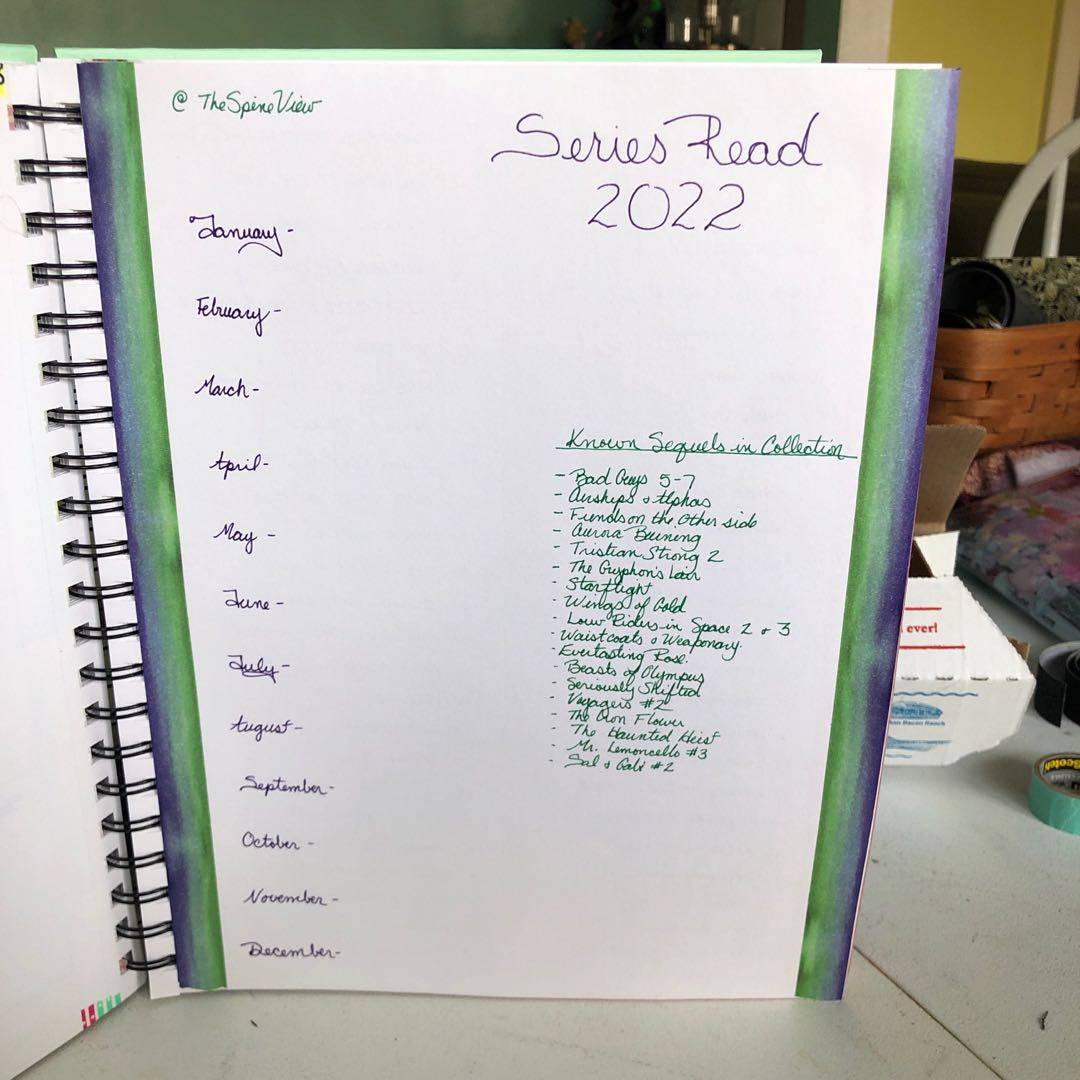 @ TheSpineView
Series Read
2022
January -
February -
March -
April -
May -
June -
July -
August -
September -
October -
November -
December -
Known Sequels in Collection
- Bad Guys 5-7
- Airships &
- Fiends on the Other side
- Aurora Burning
- Tristian Strong 2
- The Gryphon's Lair
- Starflight
- Wings of Gold
- Low Riders in Space 2 & 3
- Waistcoats & Weaponary.
- Everlasting Rose.
- Beasts of Olympus
- Seriously Shifted
- Voyagers #2
- The Iron Flower
- The Haunted Heist
- Mr. Lemoncello #3
- Sal & Gabi #2
ever!
Scotch